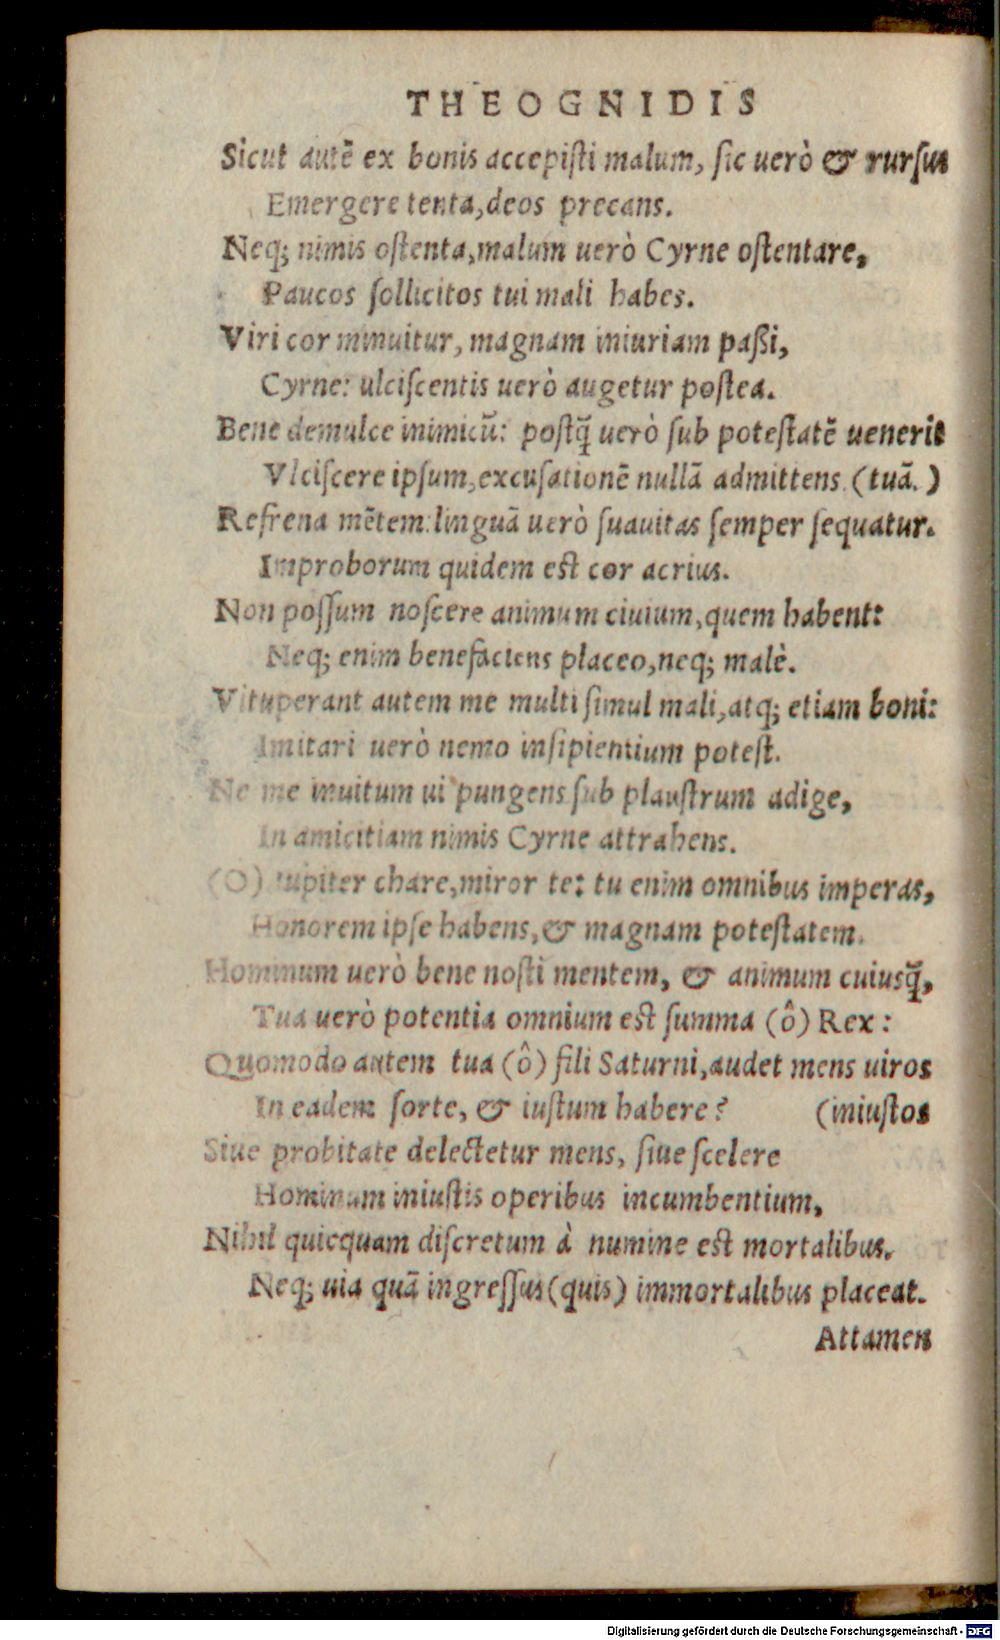 THEOGNIDIS
Sicut autē ex bonis accepiſti malum, ſic uerò & rurſus
Emergere tenta, deos precans.
Neq; nimis oſtenta, malum uerò Cyrne oſtentare,
Paucos ſollicitos tui mali habes.
Viri cor minuitur, magnam iniuriam paßi,
Cyrne: ulciſcentis uerò augetur poſtea.
Bene demulce inimicū: poſtq̃ uerò ſub poteſtatē uenerit
Vlciſcere ipſum, excuſationē nullā admittens. (tuā.)
Refrena mētem: linguā uerò ſuauitas ſemper ſequatur.
Improborum quidem eſt cor acrius.
Non poſſum noſcere animum ciuium, quem habent:
Neq; enim benefaciens placeo, neq; malè.
Vituperant autem me multi ſimul mali, atq; etiam boni:
Imitari uerò nemo inſipientium poteſt.
Ne me inuitum ui pungens ſub plauſtrum adige,
In amicitiam nimis Cyrne attrahens.
(O) Iupiter chare, miror te: tu enim omnibus imperas,
Honorem ipſe habens, & magnam poteſtatem.
Hominum uerò bene noſti mentem, & animum cuiusq̃,
Tua uerò potentia omnium eſt ſumma (ô) Rex:
Quomodo autem tua (ô) fili Saturni, audet mens uiros
In eadem ſorte, & iuſtum habere? (iniuſtos
Siue probitate delectetur mens, ſiue ſcelere
Hominum iniuſtis operibus incumbentium,
Nihil quicquam diſcretum à numine eſt mortalibus.
Neq; uia quā ingreſſus (quis) immortalibus placeat.
Attamen
Digitalisierung gefördert durch die Deutsche Forschungsgemeinschaft - DFG